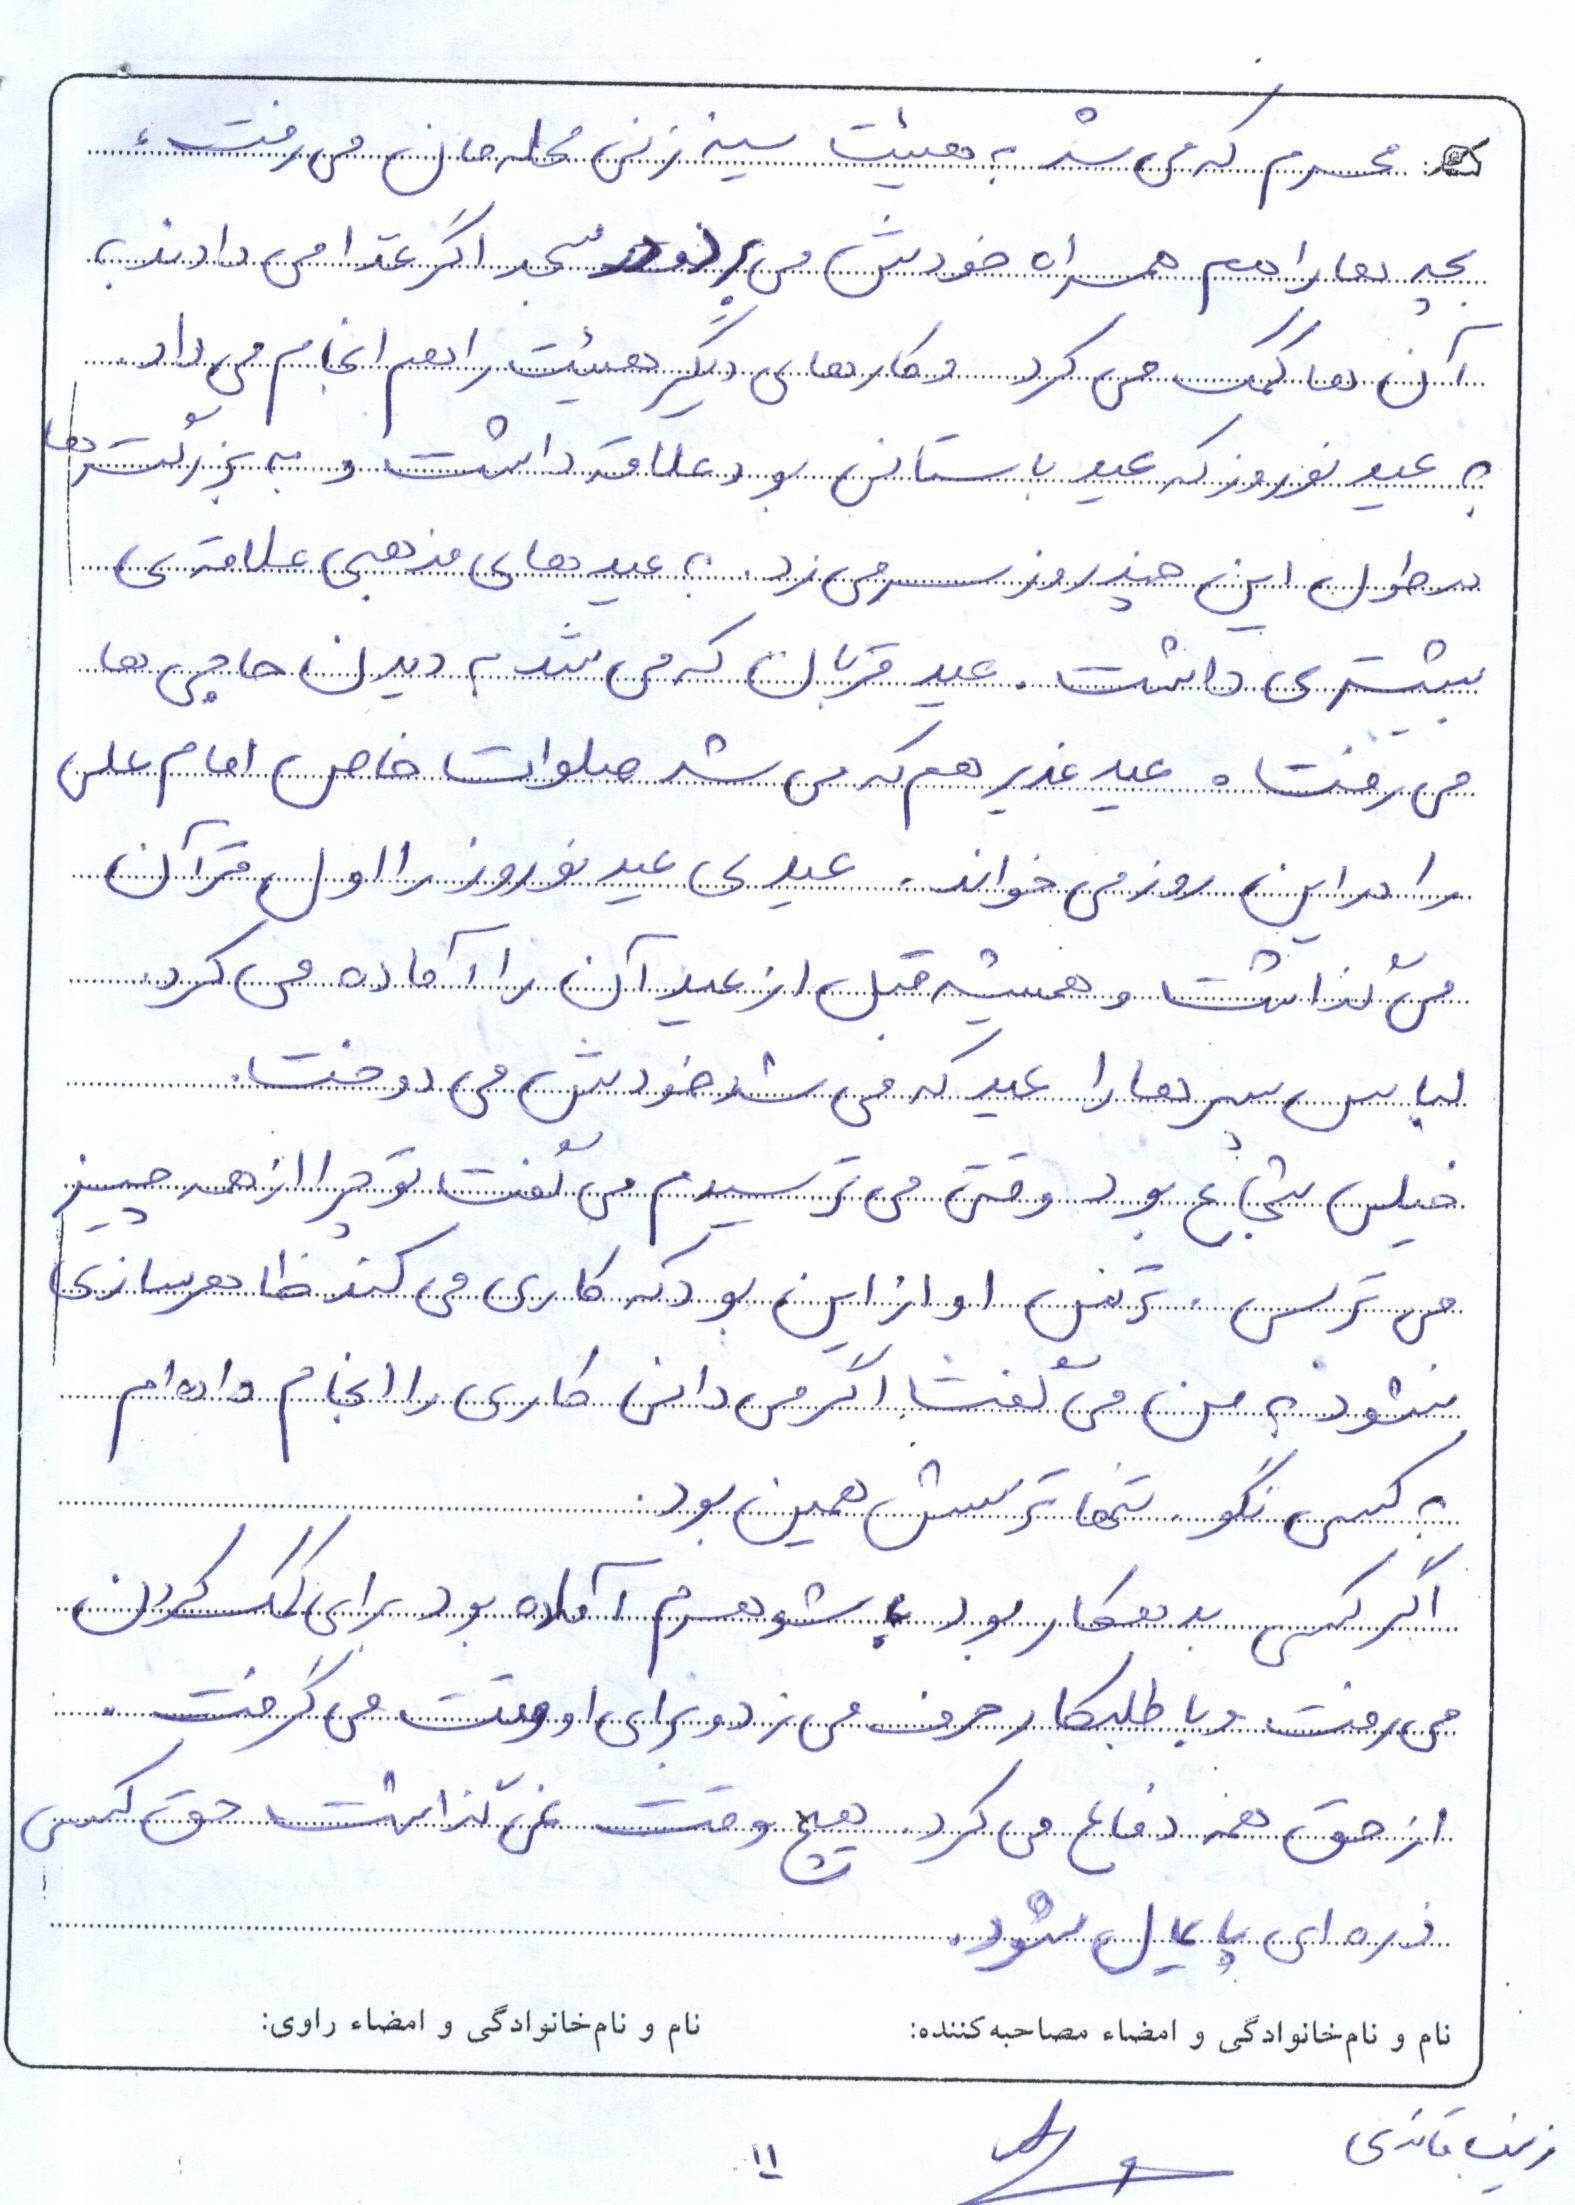 محرم که می شد به هیئت سینه زنی محله مان می رفت،
بچه ها را هم همراه خودش می برد و در مسجد اگر غذا می دادند به
آن ها کمک می کرد و کارهای دیگر هیئت را هم انجام می داد.
به عید نوروز که عید باستانی بود علاقه داشت و به بزرگترها
در طول این چند روز سر می زد. به عیدهای مذهبی علاقه ی
بیشتری داشت. عید قربان که می شد به دیدن حاجی ها
می رفت. عید غدیر هم که می شد صلوات خاص امام علی
را در این روز می خواند. عیدی عید نوروز را اول قرآن
می گذاشت و همیشه قبل از عید آن را آماده می کرد.
لباس پسرها را عید که می شد خودش می دوخت.
خیلی شجاع بود وقتی می ترسیدم می گفت تو چرا از همه چیز
می ترسی. ترس او از این بود که کاری می کند ظاهرسازی
نشود به من می گفت اگر می دانی کاری را انجام داده ام
به کسی نگو. تنها ترسش همین بود.
اگر کسی بدهکار بود شوهرم آماده بود برای کمک کردن
می رفت و با طلبکار حرف می زد و برای او وقت می گرفت.
از حق همه دفاع می کرد. هیچ وقت نمی گذاشت حق کسی
ذره ای پایمال شود.
نام و نام‌خانوادگی و امضاء مصاحبه‌کننده: نام و نام‌خانوادگی و امضاء راوی:
زینب قائدی
۱۱